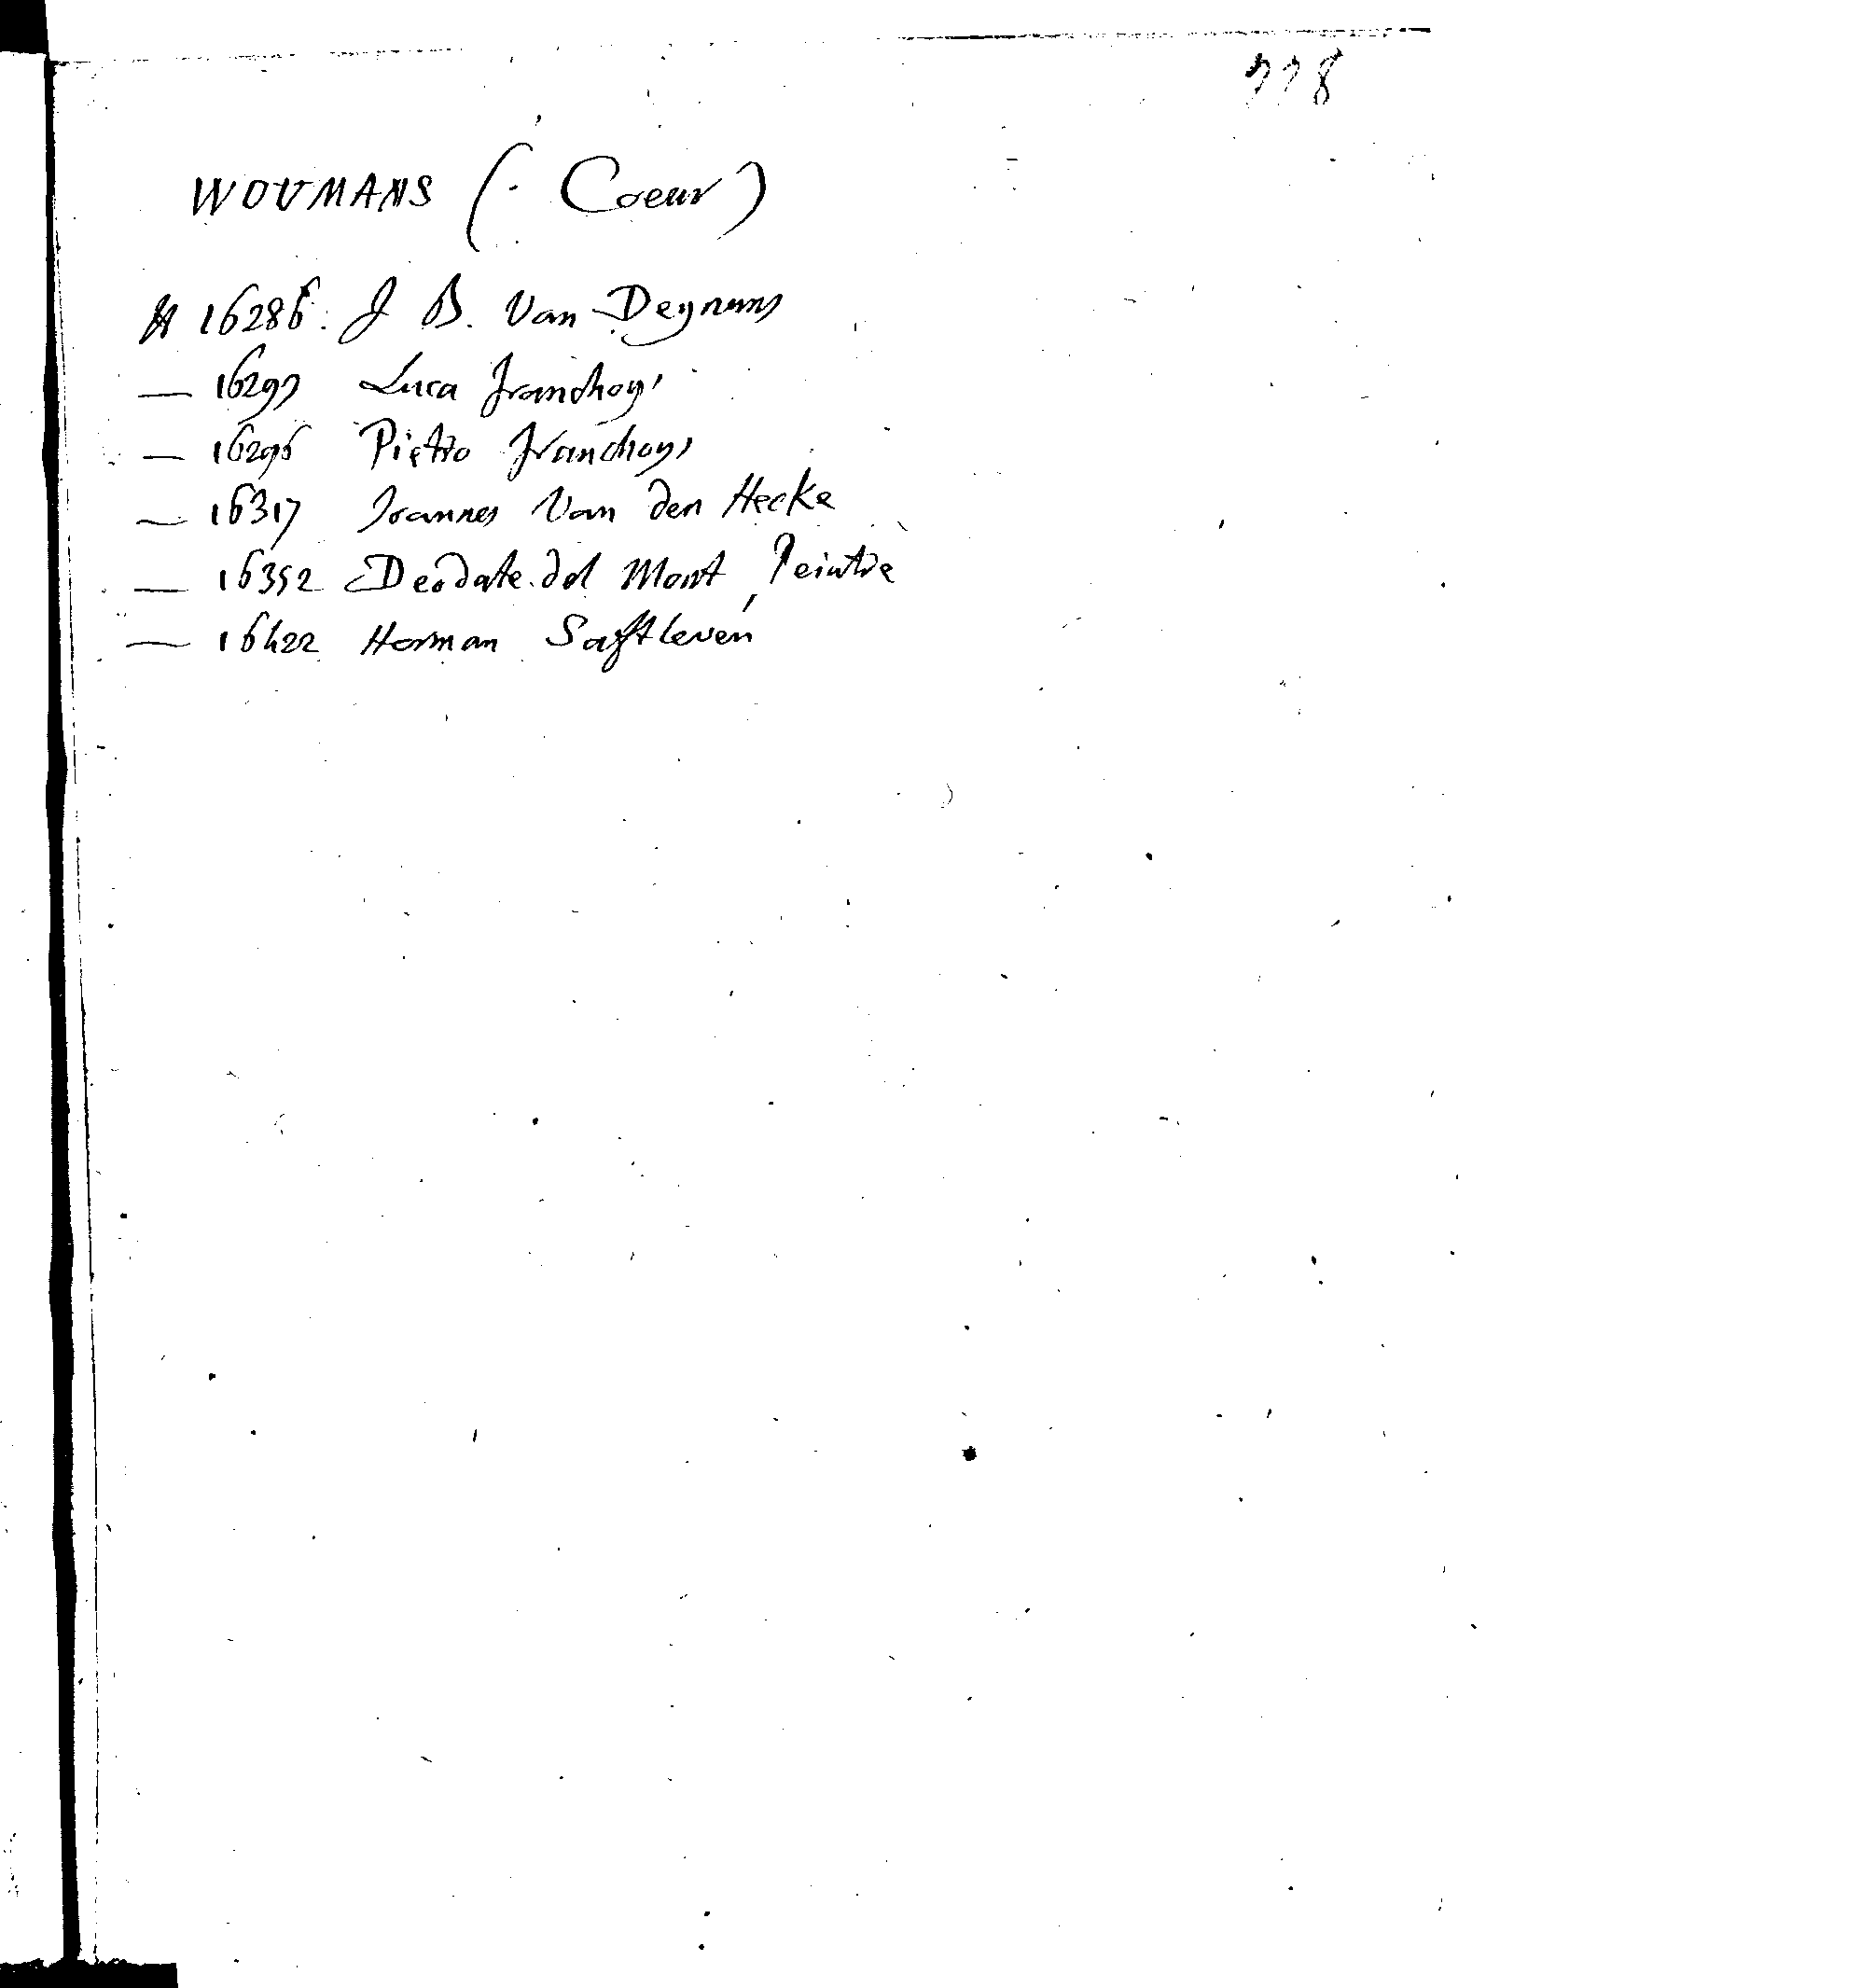 778
WOUMANS (. Coeur)
N 16286. J B. Van Deynums
— 16297 Luca Franchoys
— 16296 Pietro Franchoys
— 16317 Joannes Van den Hecke
— 16352 Deodate del Mont, Peintre
— 16422 Herman Saftleven